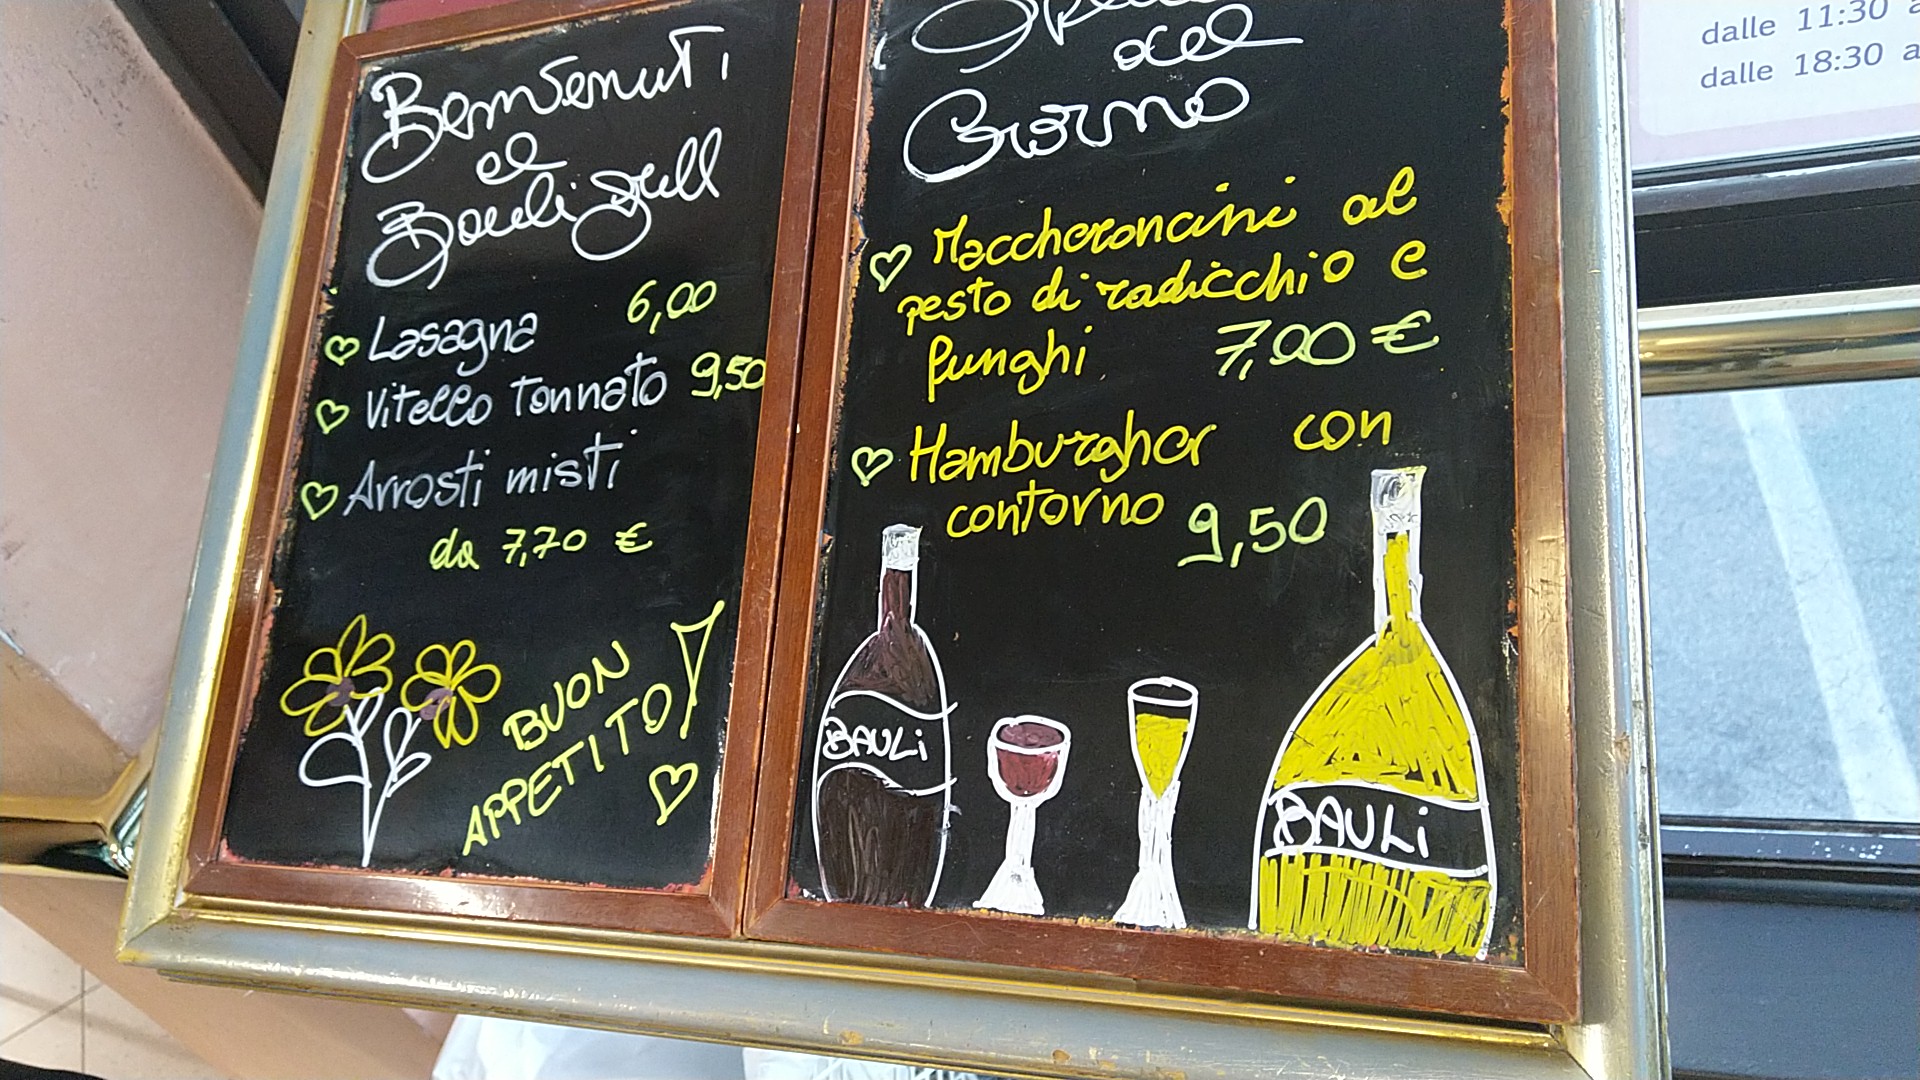 Benvenuti
al
Bauli Grill
Lasagna 6,00
Vitello tonnato 9,50
Arrosti misti
da 7,70 €
BUON
APPETITO!
del
Giorno
Maccheroncini al
pesto di radicchio e
funghi 7,00 €
Hamburgher con
contorno 9,50
BAULi
BAULi
dalle 11:30
dalle 18:30